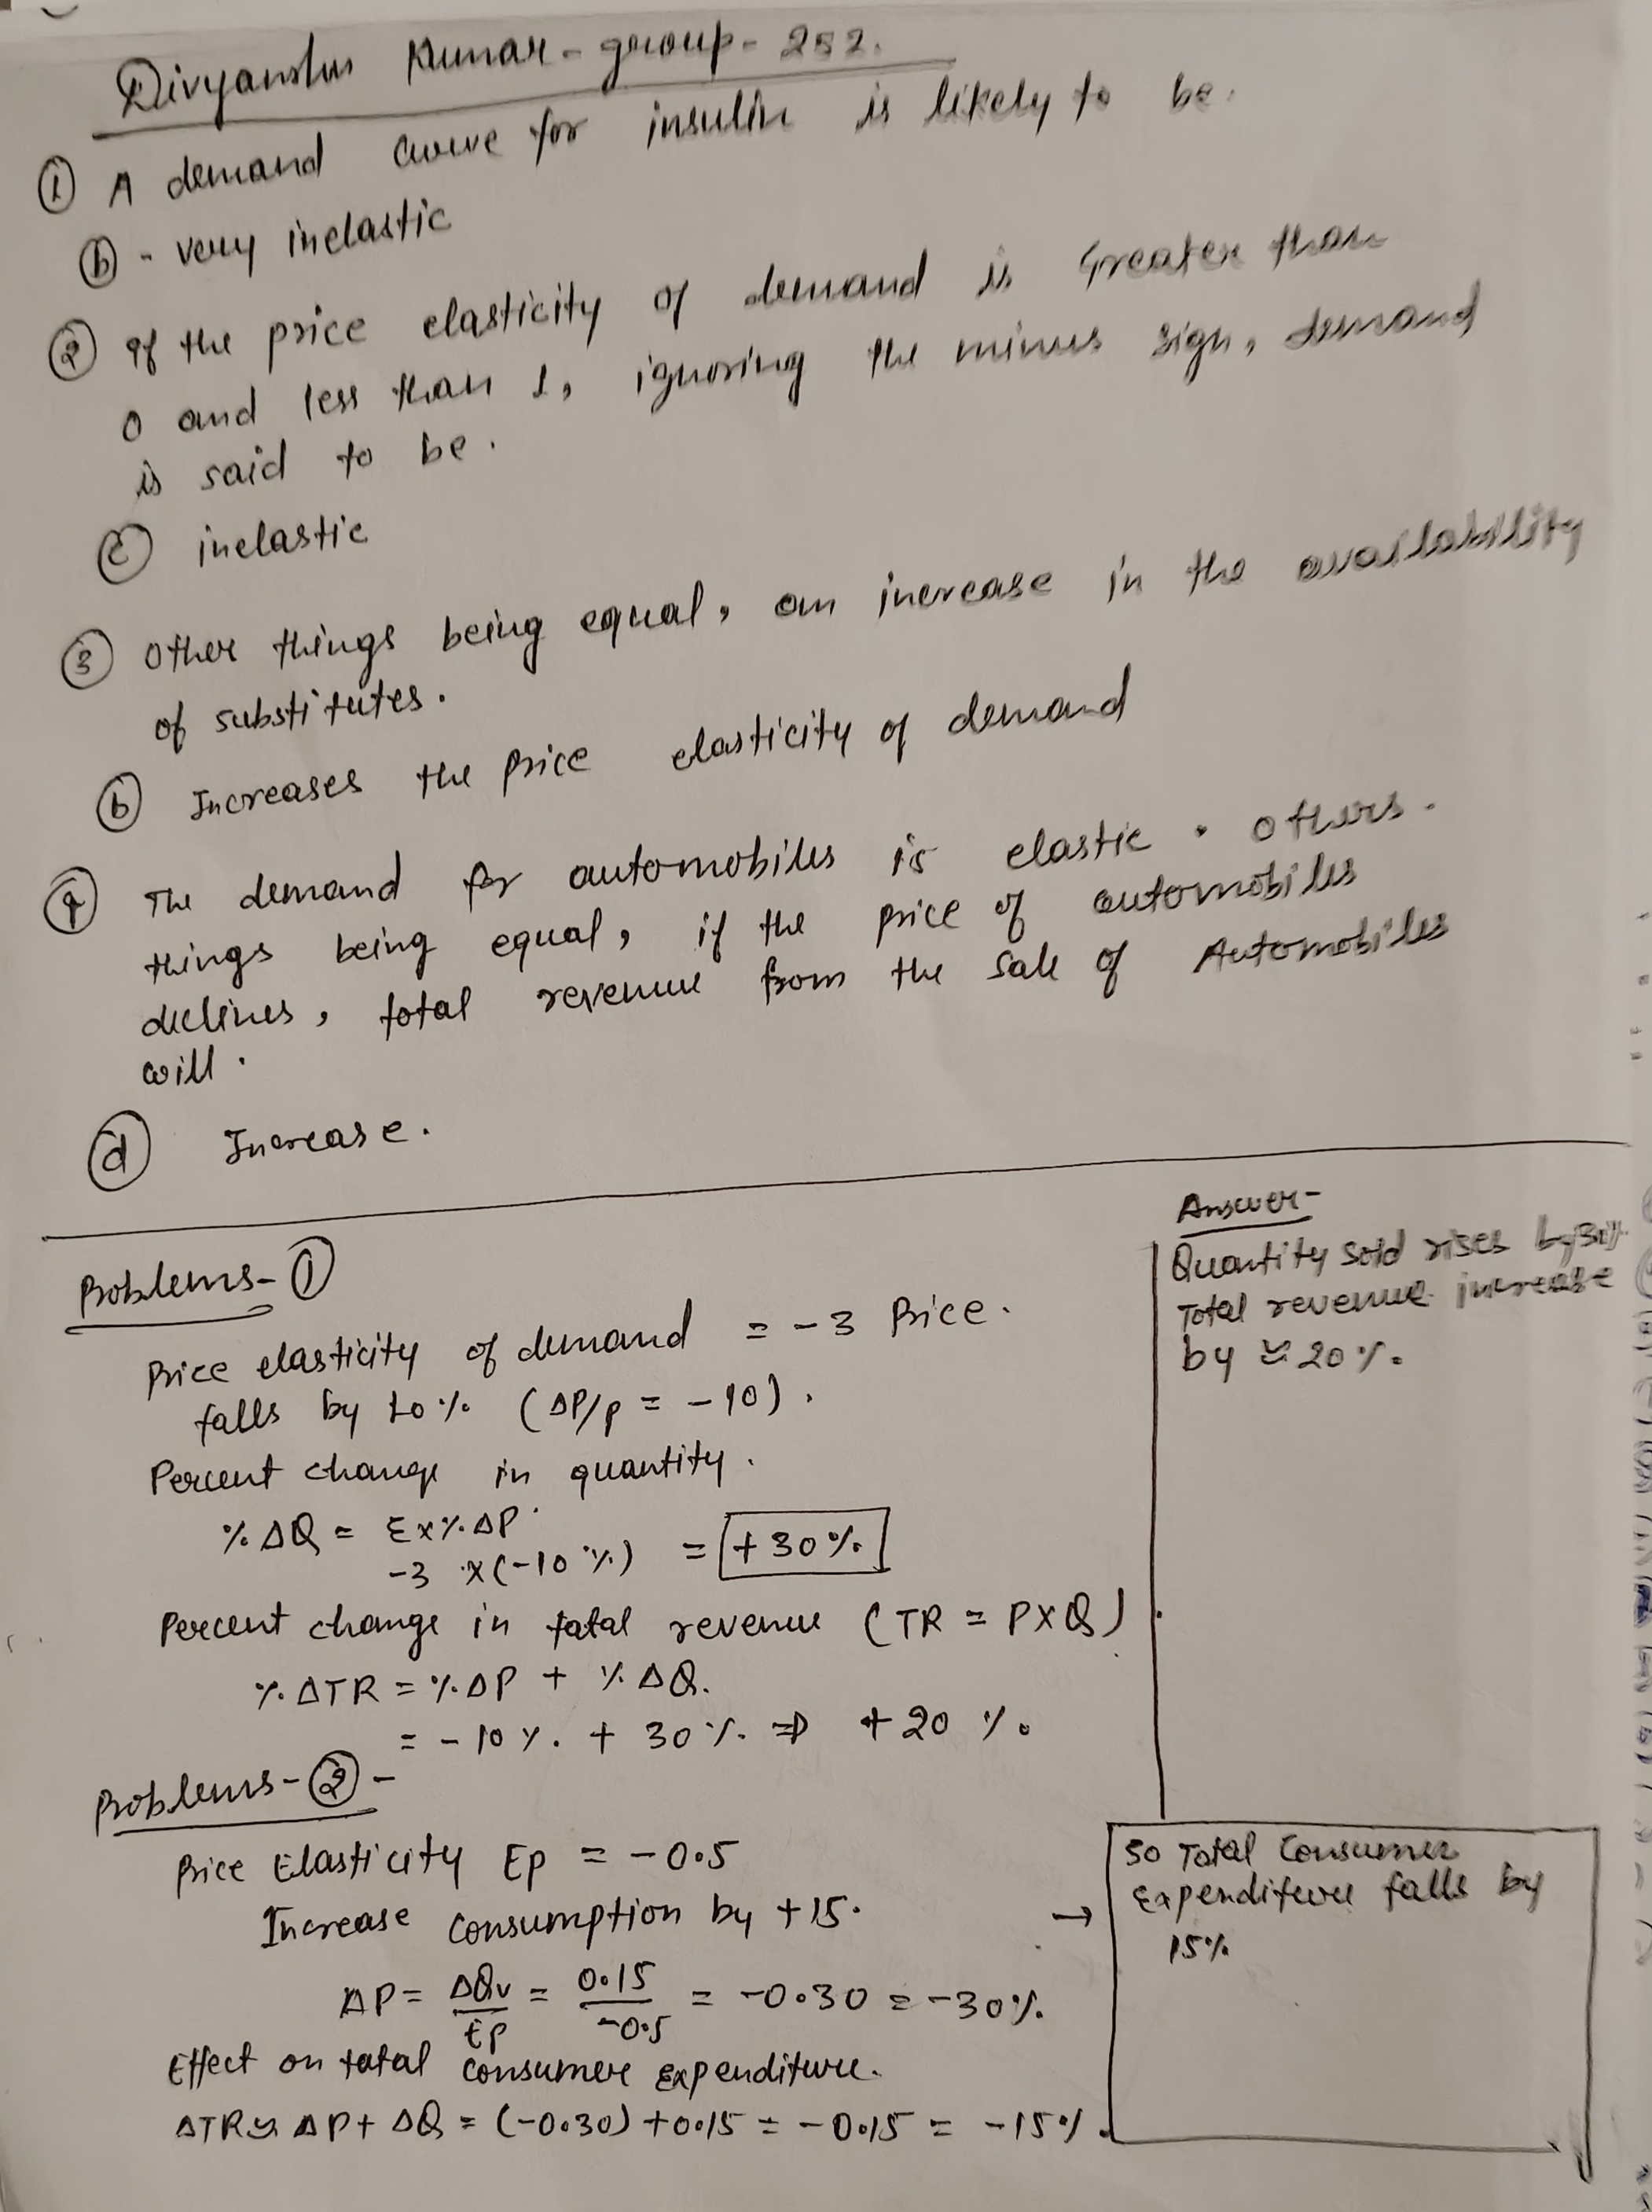 Divyanshu Kumar - group - 252.
① A demand curve for insulin is likely to be.
ⓑ - very inelastic
② If the price elasticity of demand is Greater than
0 and less than 1, ignoring the minus sign, demand
is said to be.
ⓒ inelastic
③ Other things being equal, an increase in the availability
of substitutes.
ⓑ Increases the price elasticity of demand
④ The demand for automobiles is elastic. Others.
things being equal, if the price of automobiles
declines, total revenue from the sale of Automobiles
will.
ⓓ Increase.
Problems - ①
Price elasticity of demand = -3 Price.
falls by 10% (ΔP/P = -10).
Percent change in quantity.
%ΔQ = E x %ΔP
-3 x (-10%) = +30%
Percent change in total revenue (TR = PXQ)
%ΔTR = %ΔP + %ΔQ.
= -10% + 30% ⇒ +20%
Answer-
Quantity sold rises by 30%
Total revenue increase
by ≈ 20%.
Problems - ② -
Price Elasticity Ep = -0.5
Increase consumption by +15.
ΔP = ΔQ/Ep = 0.15/-0.5 = -0.30 = -30%.
Effect on total consumer expenditure.
ΔTR ≈ ΔP + ΔQ = (-0.30) + 0.15 = -0.15 = -15%.
→ So Total Consumer
Expenditure falls by
15%